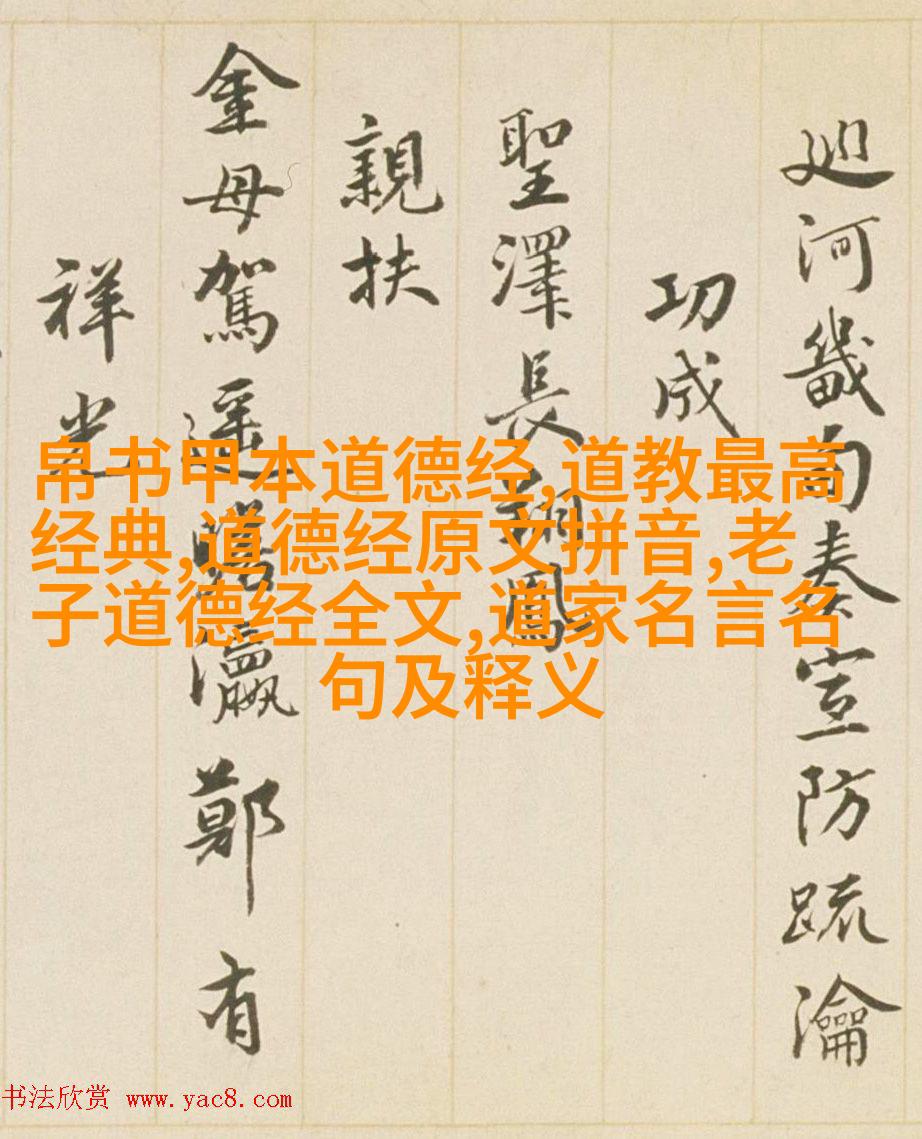 廵河畿甸奏宣防疏瀹
功成
聖澤長翔鳳
親扶
金母駕遥瞻瀛鄭有
祥光
帛书甲本道德经,道教最高
经典,道德经原文拼音,老
子道德经全文,道家名言名
句及释义
书法欣赏 www.yac8.com